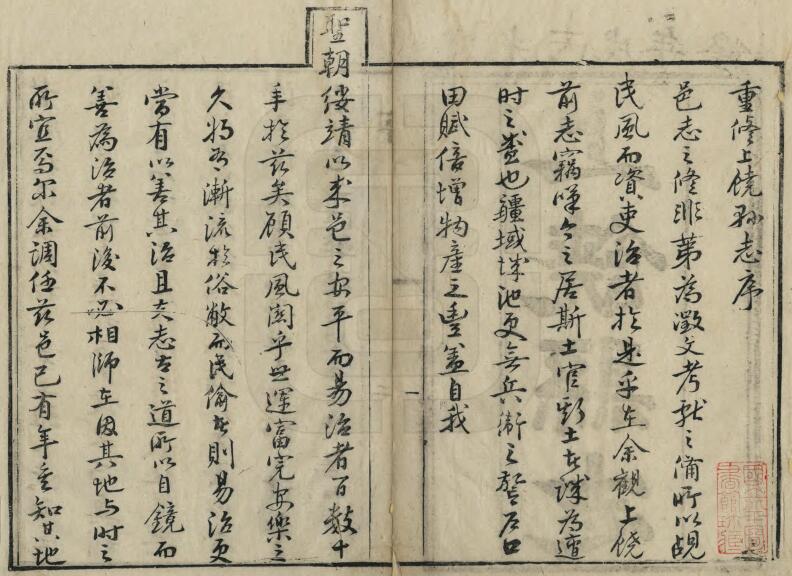 重修上饒縣志序
邑志之修非第為徵文考獻之備所以覘
民風而資吏治者於是乎在余觀上饒
前志竊嘆今之居斯土官斯土者誠為遭
時之盛也疆域城池更無兵衛之警戶口
田賦倍增物産之豐盈自我
聖朝綏靖以來邑之安平而易治者百數十
年於茲矣顧民風關乎世運富完安樂之
久將有漸流於俗敝而民偷者則易治更
當有以善其治且夫志古之道所以自鏡而
善為治者前後不必相師在因其地與時之
所宜焉爾余調任茲邑已有年重知其地